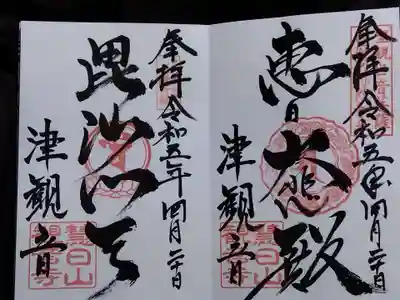 奉拝 令和五年四月二十日
惠日大悲殿
津観音
慧日山
観音寺
奉拝 令和五年四月二十日
毘沙門天
津観音
慧日山
観音寺